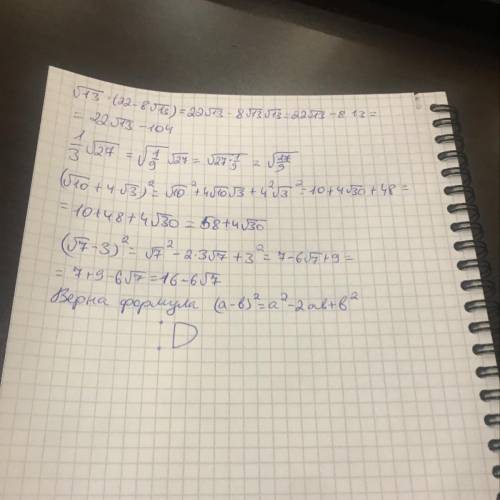 √13 · (22 - 8√13) = 22√13 - 8√13√13 = 22√13 - 8·13 =
= 22√13 - 104
1/3 √27 = √(1/9) √27 = √(27·1/9) = √(27/9)
(√10 + 4√3)² = √10² + 4√10√3 + 4²√3² = 10 + 4√30 + 48 =
= 10 + 48 + 4√30 = 58 + 4√30
(√7 - 3)² = √7² - 2·3√7 + 3² = 7 - 6√7 + 9 =
= 7 + 9 - 6√7 = 16 - 6√7
Верна формула (a-b)² = a² - 2ab + b²
:D